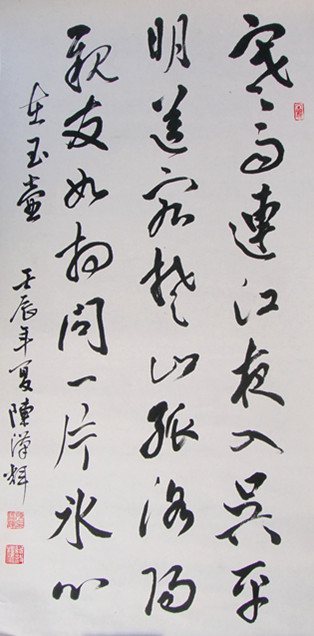 寒雨連江夜入吳平
明送客楚山孤洛陽
親友如相問一片冰心
在玉壺
壬辰年夏陳漢